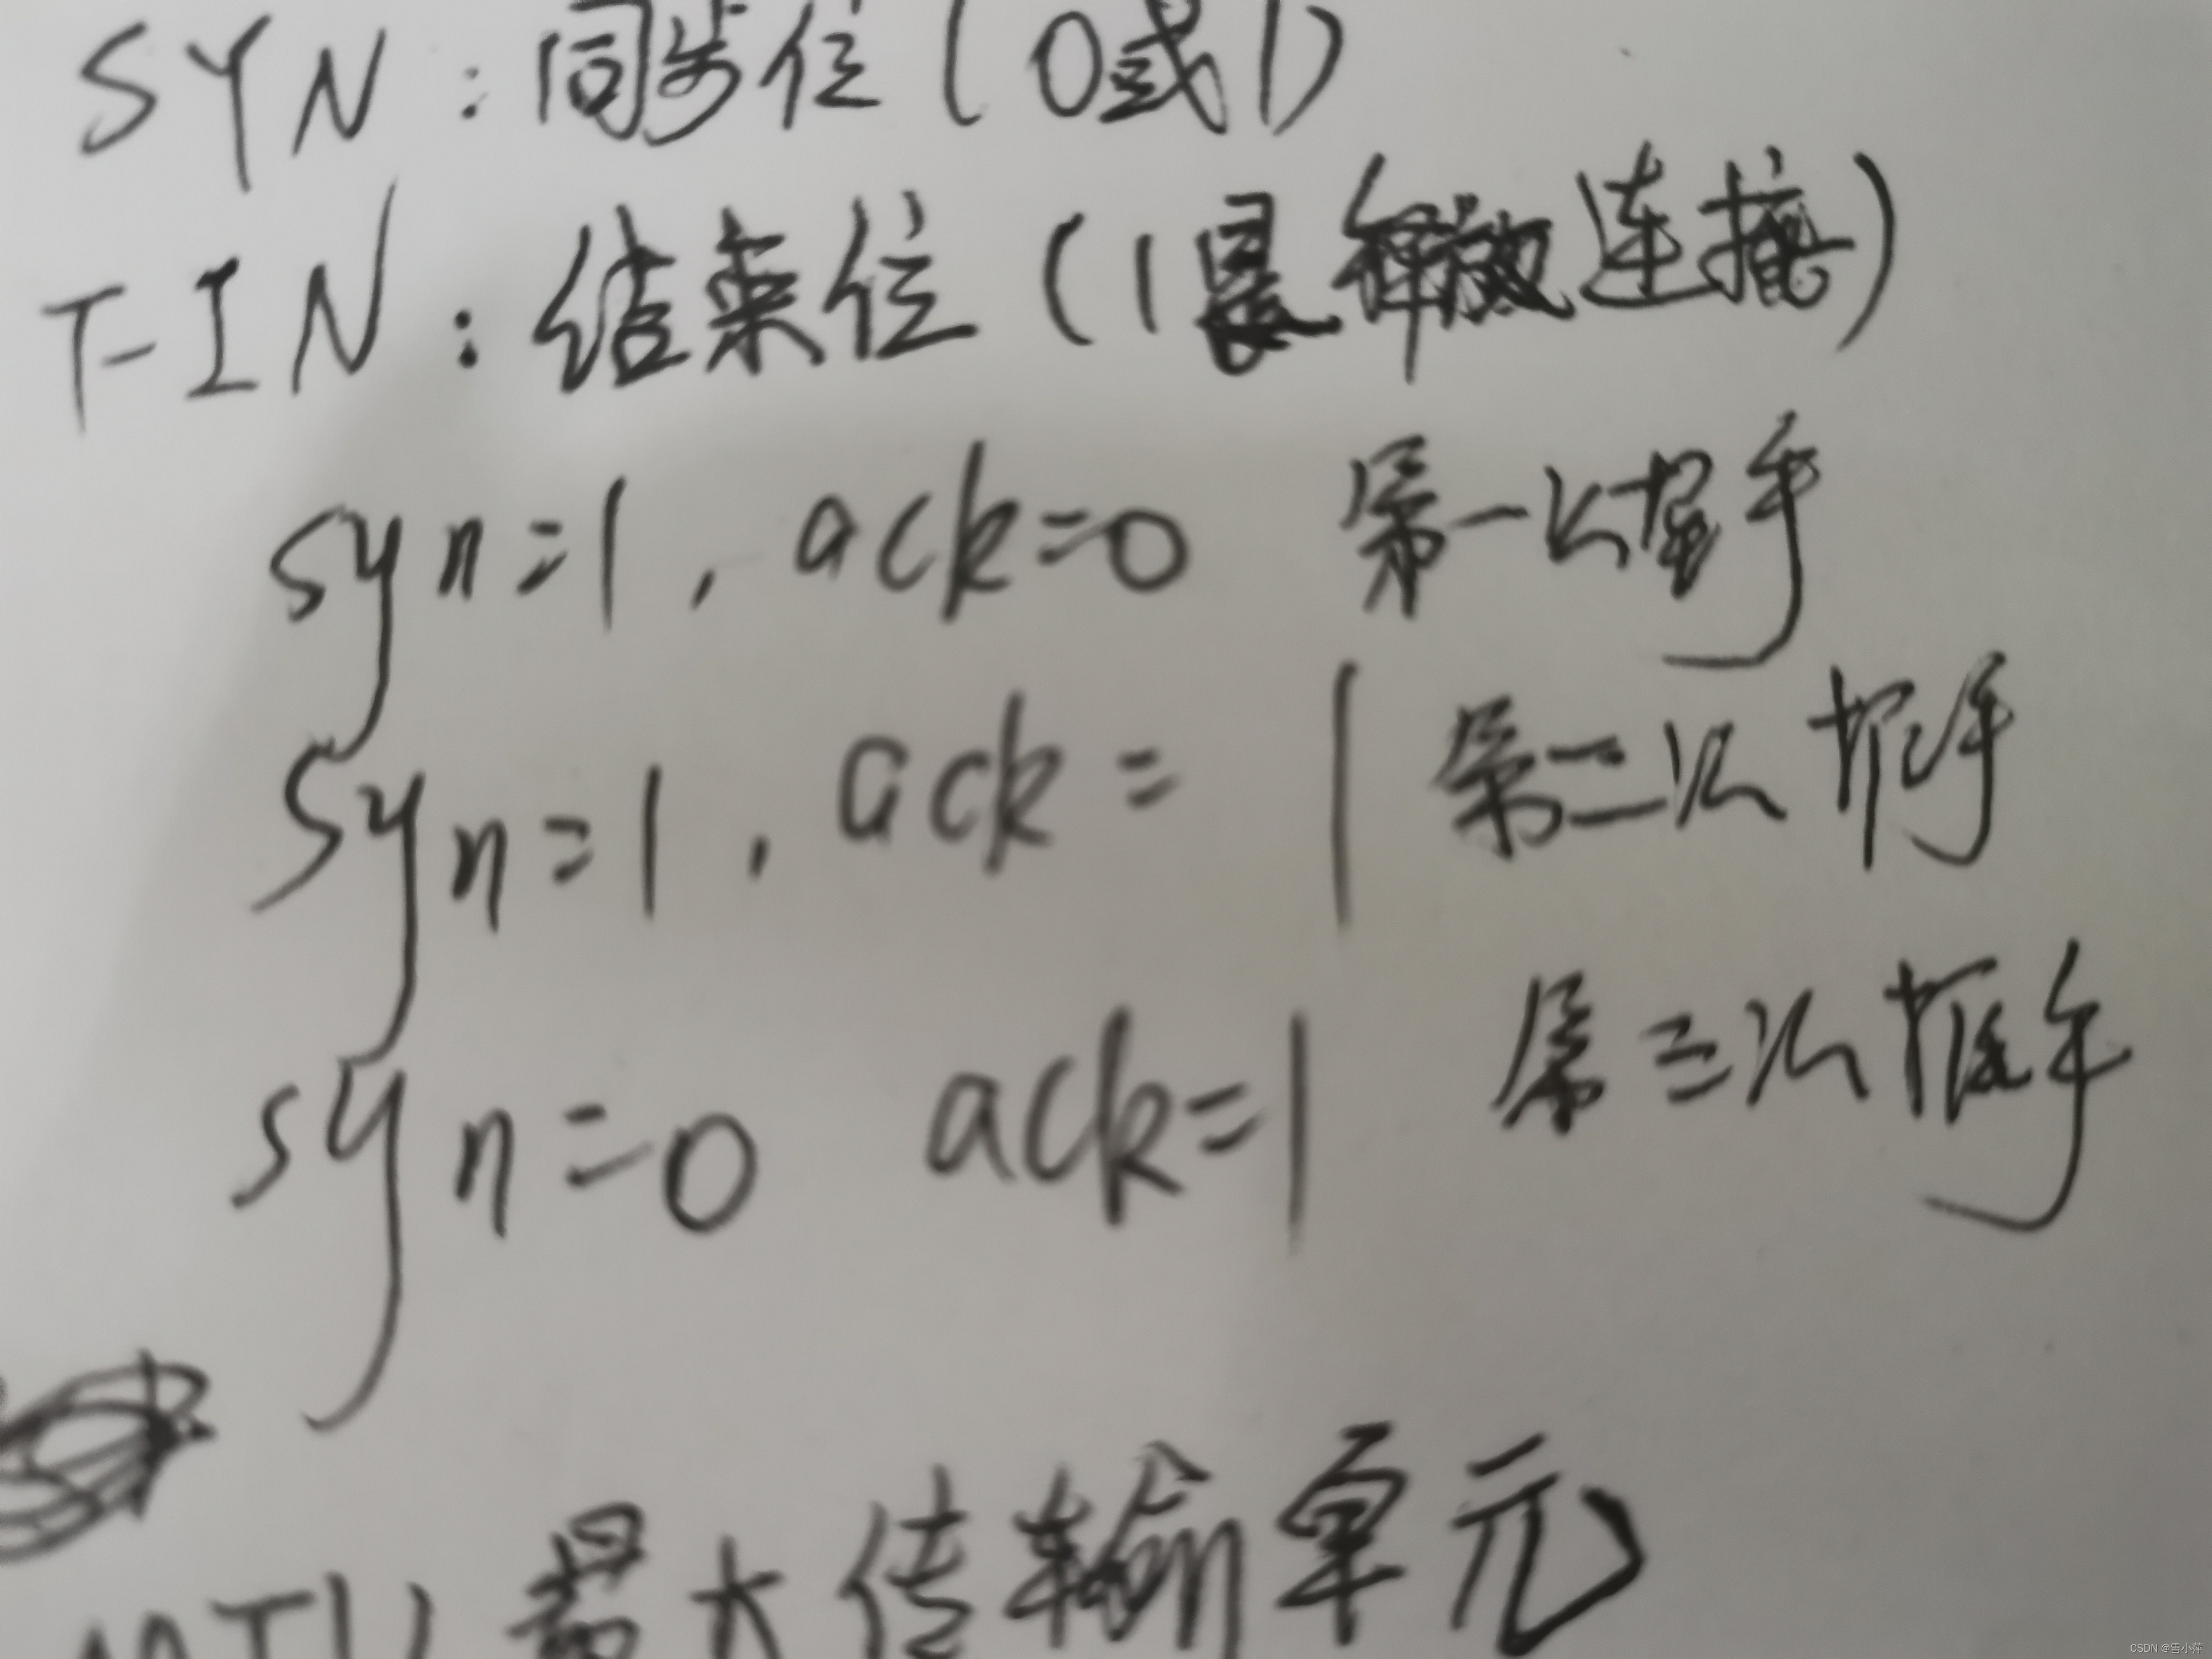 SYN：同步位（0或1）
FIN：结束位（1是释放连接）
syn=1，ack=0 第一次握手
syn=1，ack=1 第二次握手
syn=0 ack=1 第三次握手
MTU 最大传输单元
CSDN @雪小萍